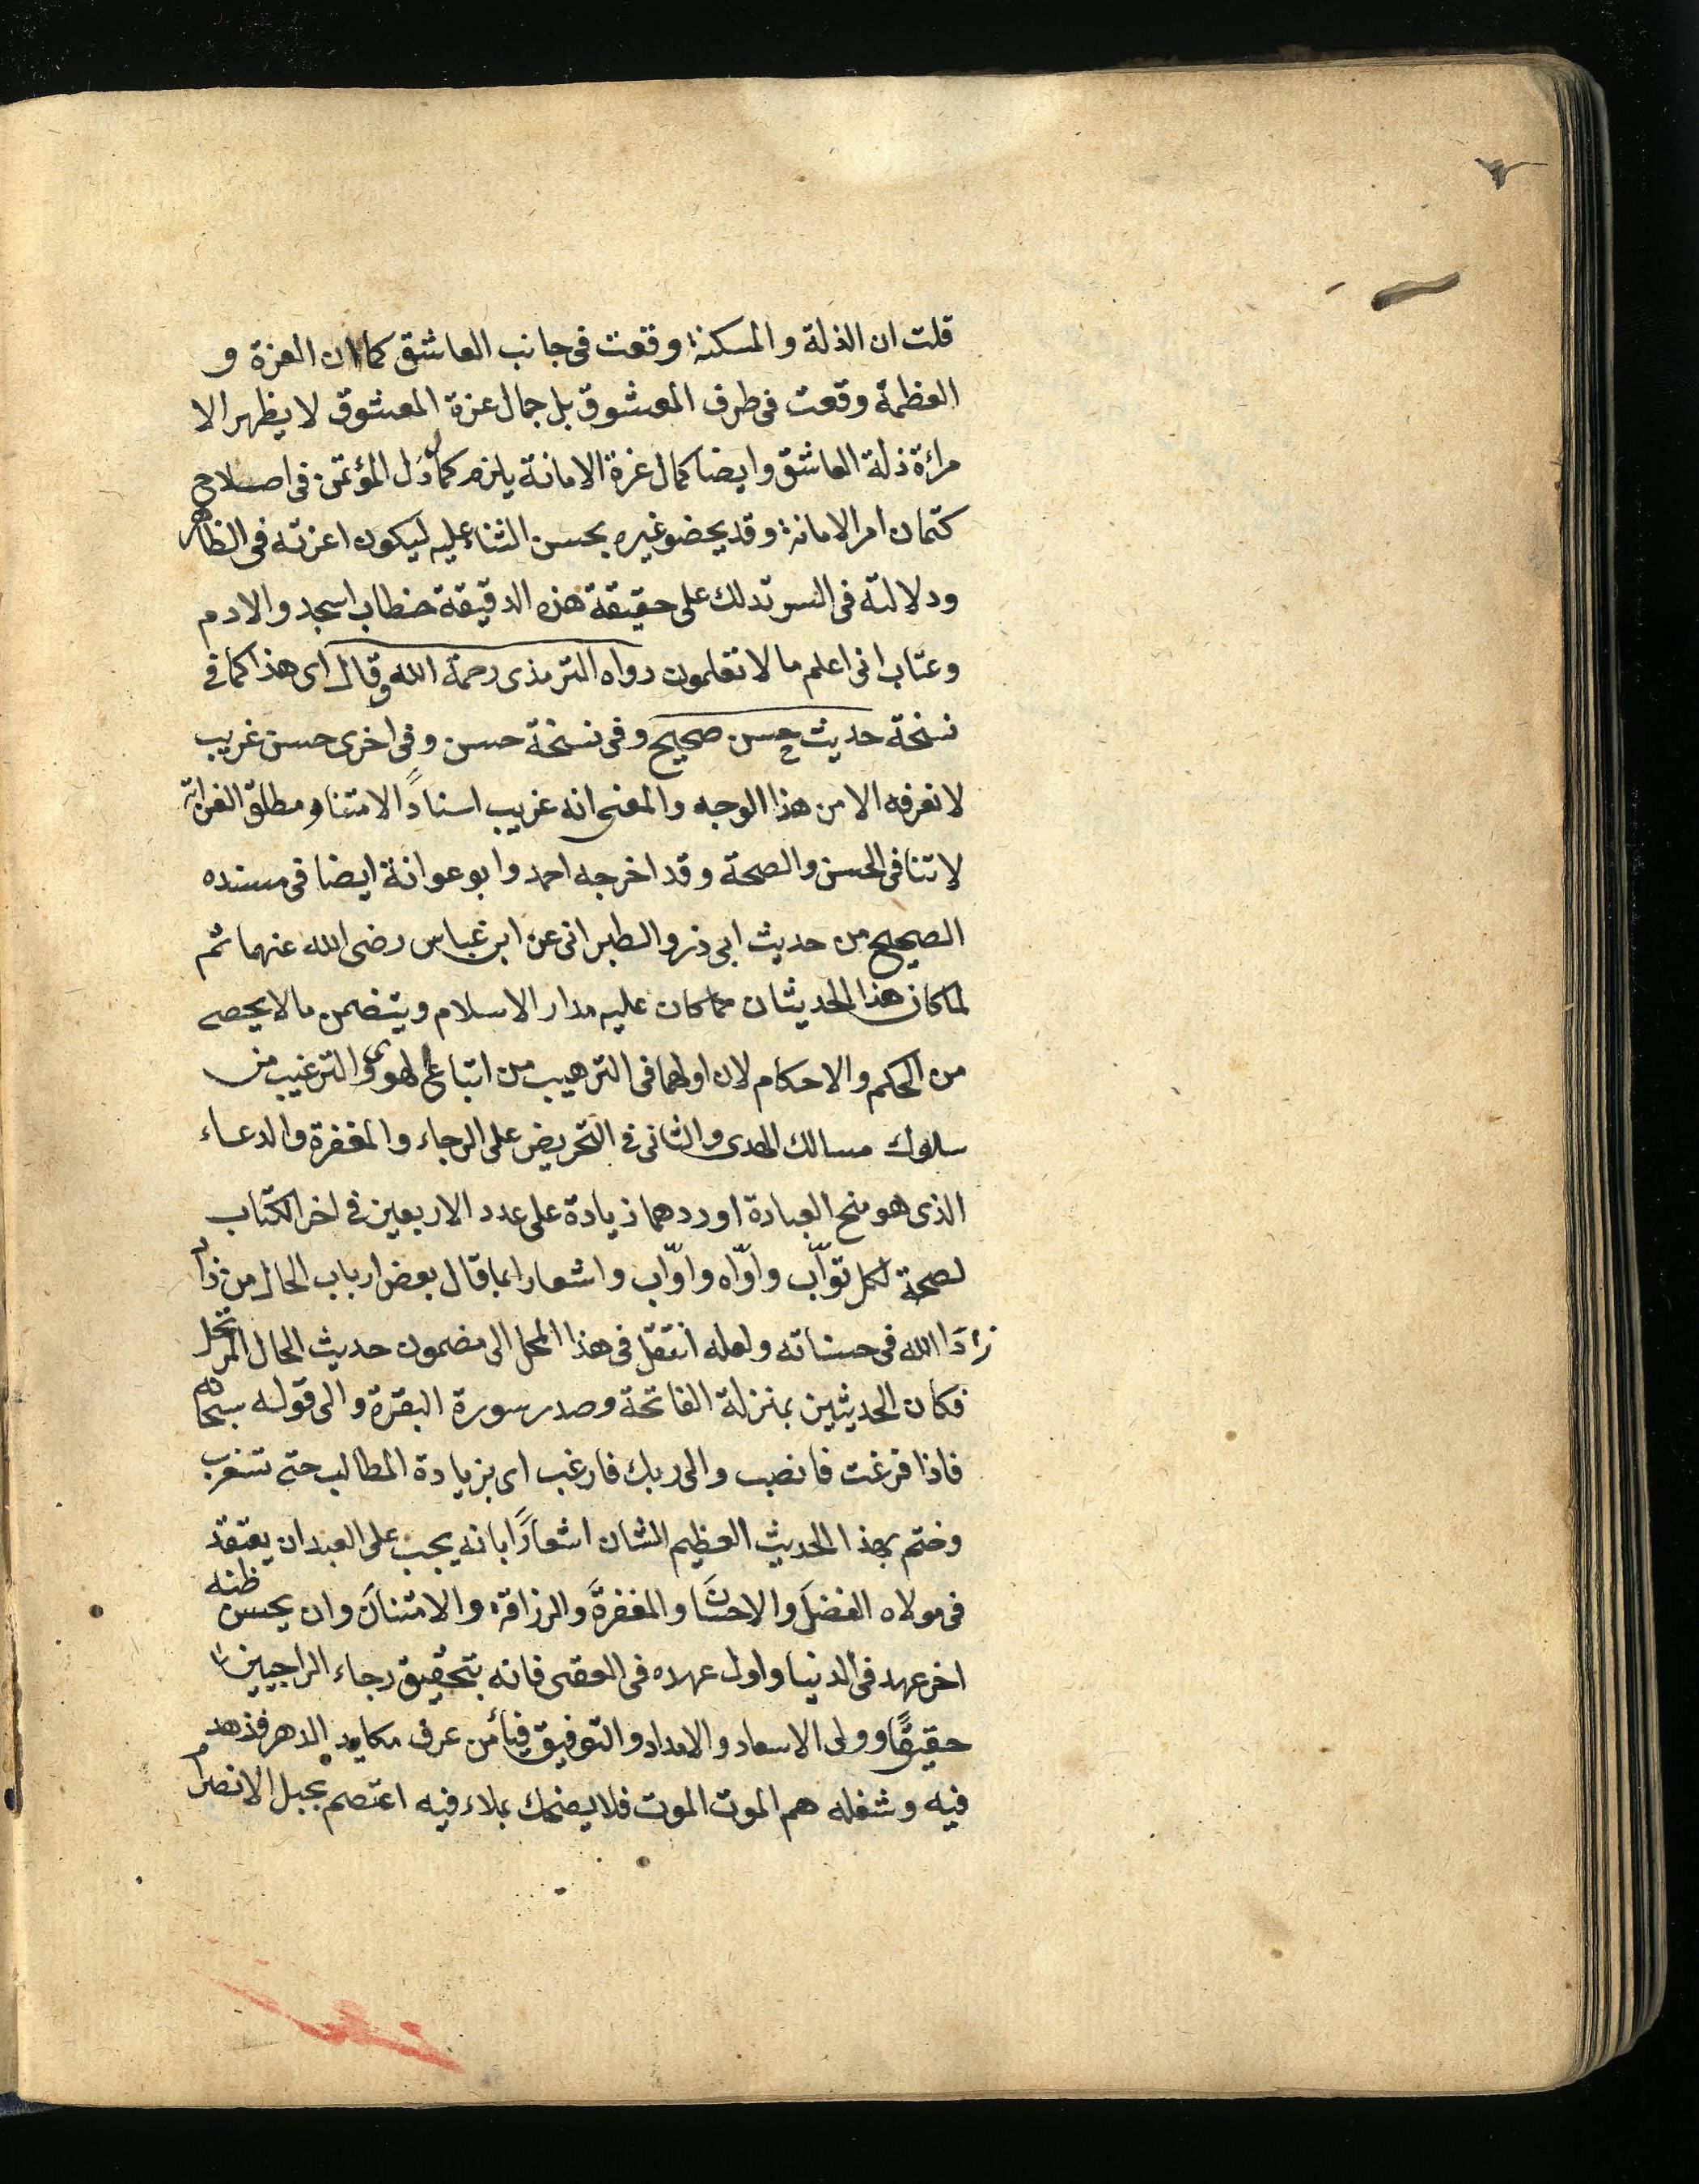 قلت ان الذلة والمسكنة وقعت فى جانب العاشق كما ان العزة و
العظمة وقعت فى طرف المعشوق بل جمال عزة المعشوق لا يظهر الا
مراءة ذلة العاشق وايضا كمال عزة الامانة يلزم كمال ذل المؤتمن فى اصلاح
كتمان امر الامانة وقد يحضو غيره بحسن الثناء عليه ليكون اعزته فى الظاهر
ودلالته فى السر تدلك على حقيقة هذه الدقيقة خطاب اسجدوا لادم
وعتاب انى اعلم ما لا تعلمون رواه الترمذى رحمة الله وقال اى هذا كما فى
نسخة حديث حسن صحيح وفى نسخة حسن وفى اخرى حسن غريب
لا نعرفه الا من هذا الوجه والمعنى انه غريب اسنادًا لا متنا ومطلق الغرابة
لا تنافى الحسن والصحة وقد اخرجه احمد وابو عوانة ايضا فى مسنده
الصحيح من حديث ابى ذر والطبرانى عن ابن عباس رضى الله عنهما ثم
لما كان هذا الحديثان مما كان عليه مدار الاسلام ويتضمن ما لا يحصى
من الحكم والاحكام لان اولهما فى الترهيب من اتباع الهوى والترغيب من
سلوك مسالك الهدى والثانى فى التحريض على الرجاء والمغفرة والدعاء
الذى هو مخ العبادة اوردهما زيادة على عدد الاربعين فى اخر الكتاب
لصحة لكل توّاب واوّاه واوّاب واشعارا بما قال بعض ارباب الحال من زاد
زادَ الله فى حسناته ولعله انتقل فى هذا المحل الى مضمون حديث الحال المرتحل
فكان الحديثين بمنزلة الفاتحة وصدر سورة البقرة والى قوله سبحانه
فاذا فرغت فانصب والى ربك فارغب اى بزيادة المطالب حتى تتغرب
وختم بهذا الحديث العظيم الشان اشعارًا بانه يجب على العبد ان يعتقد
فى مولاه الفضلَ والاحسانَ والمغفرةَ والرزاقة والامتنانَ وان يحسن ظنه
اخر عهد فى الدنيا واول عهده فى العقبى فانه بتحقيق رجاء الراجيين
حقيقًا وولى الاسعاد والامداد والتوفيق فيا من عرف مكايد الدهر فزهد
فيه وشغله هم الموت الموت فلا يضحك بملاء فيه اعتصم بحبل الانصرام